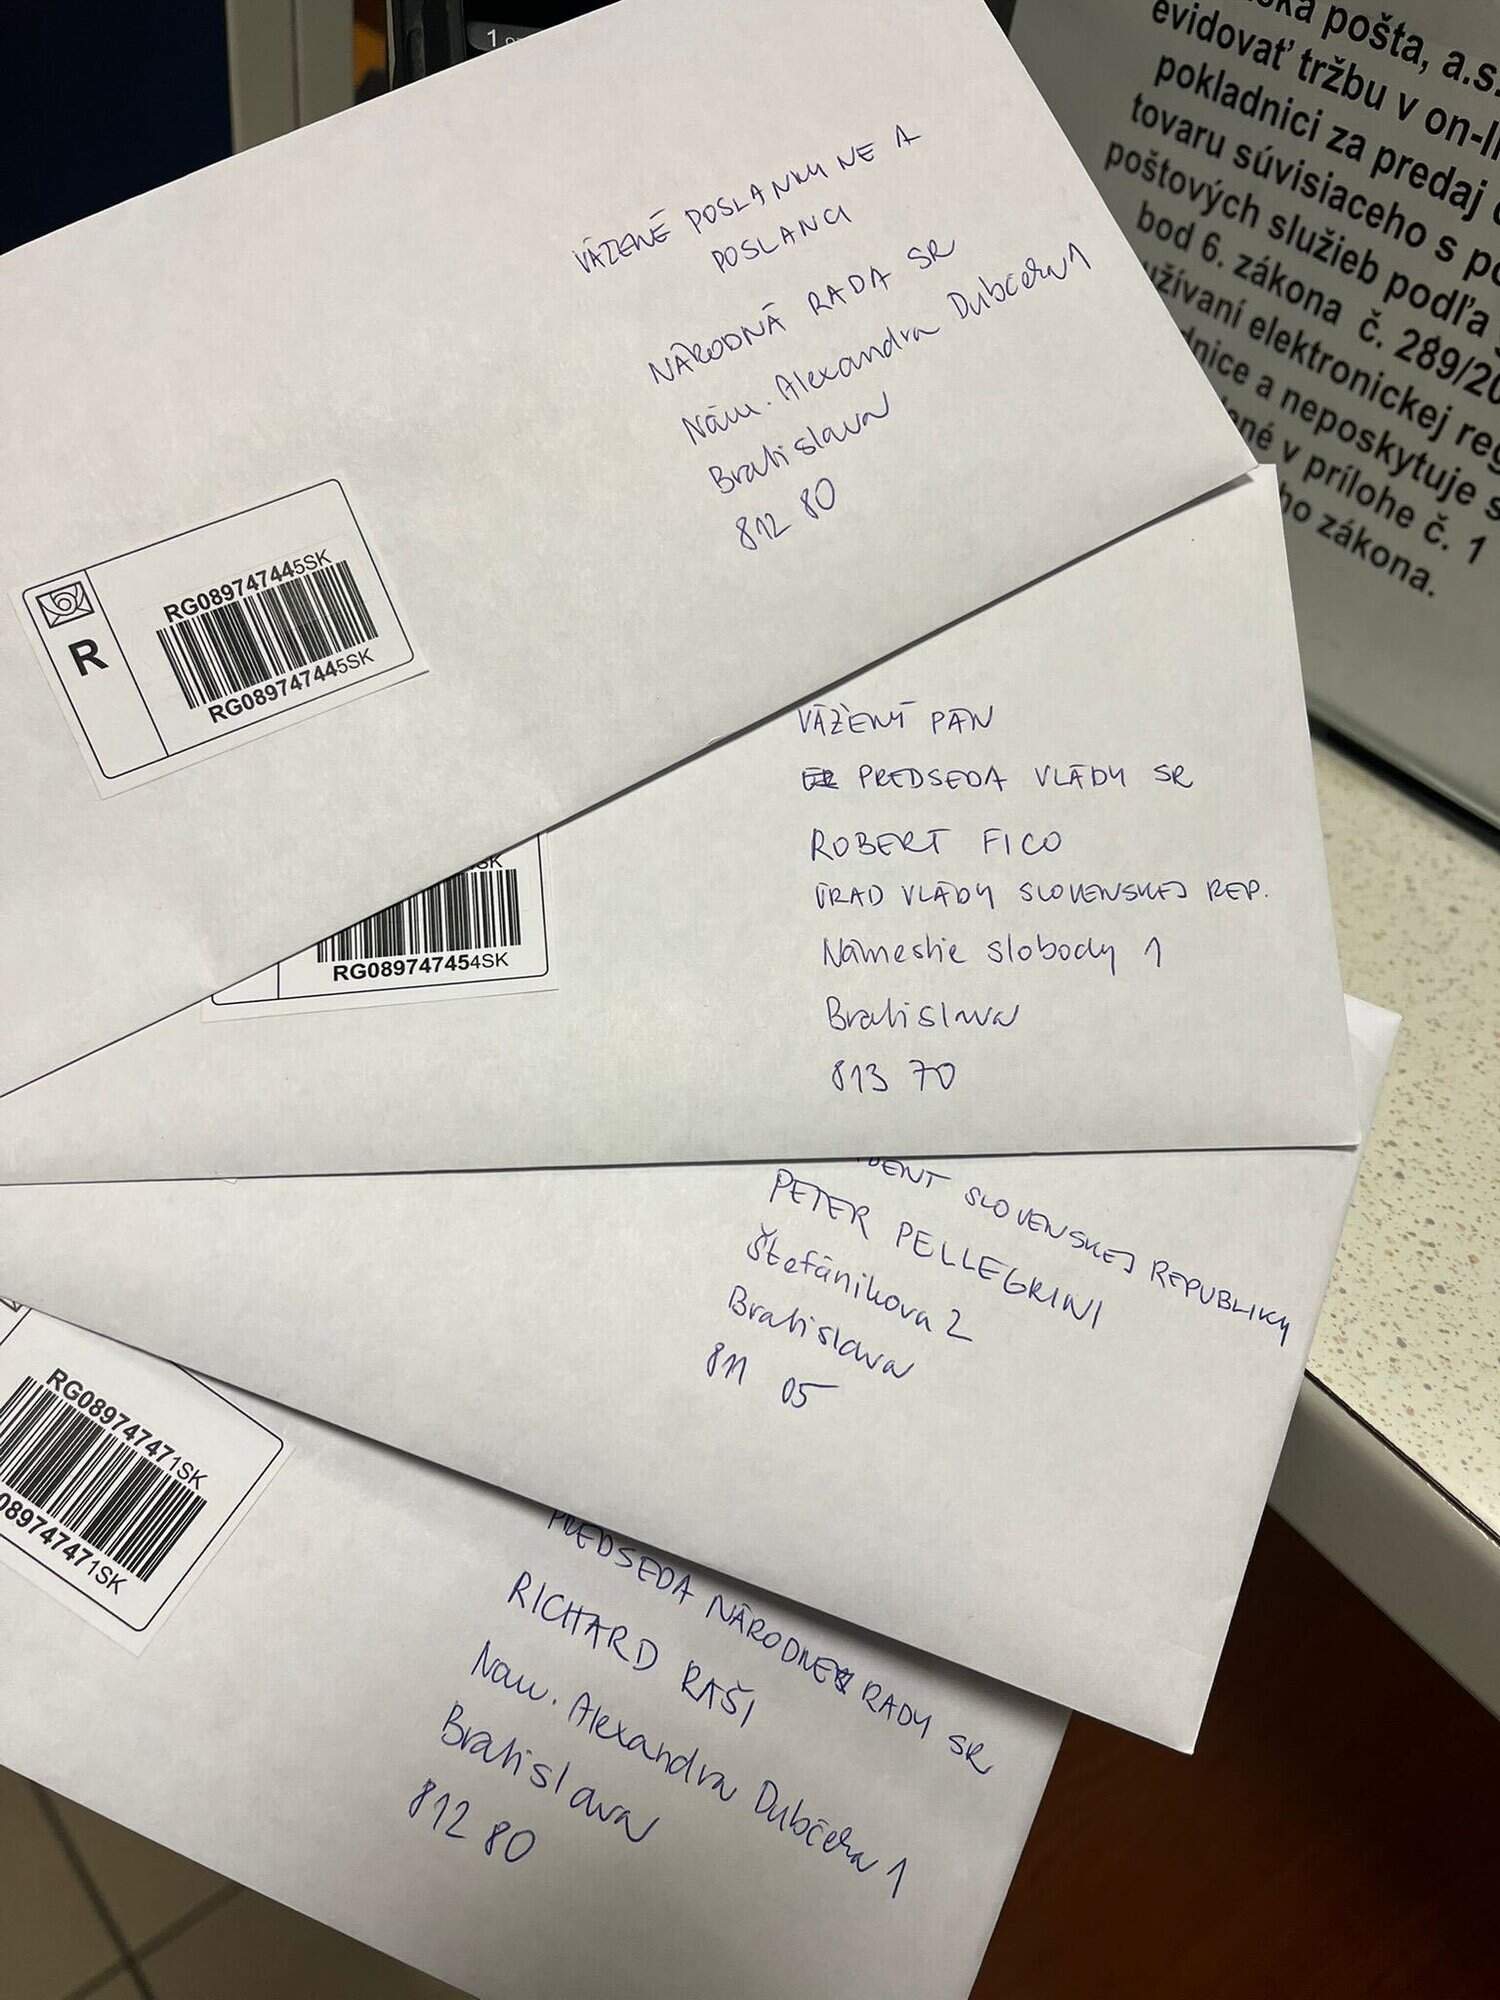 1
ská pošta, a.s.
evidovať tržbu v on-li
pokladnici za predaj
tovaru súvisiaceho s po
poštových služieb podľa
bod 6. zákona č. 289/20
užívaní elektronickej reg
dnice a neposkytuje s
ené v prílohe č. 1
ho zákona.
VÁŽENÉ POSLANKYNE A
POSLANCI
NÁRODNÁ RADA SR
Nám. Alexandra Dubčeka 1
Bratislava
812 80
RG089747445SK
R
RG089747445SK
VÁŽENÝ PÁN
PREDSEDA VLÁDY SR
ROBERT FICO
ÚRAD VLÁDY SLOVENSKEJ REP.
Námestie slobody 1
Bratislava
813 70
SK
RG089747454SK
DENT SLOVENSKEJ REPUBLIKY
PETER PELLEGRINI
Štefánikova 2
Bratislava
811 05
RG089747471SK
089747471SK
PREDSEDA NÁRODNEJ RADY SR
RICHARD RAŠI
Nám. Alexandra Dubčeka 1
Bratislava
812 80